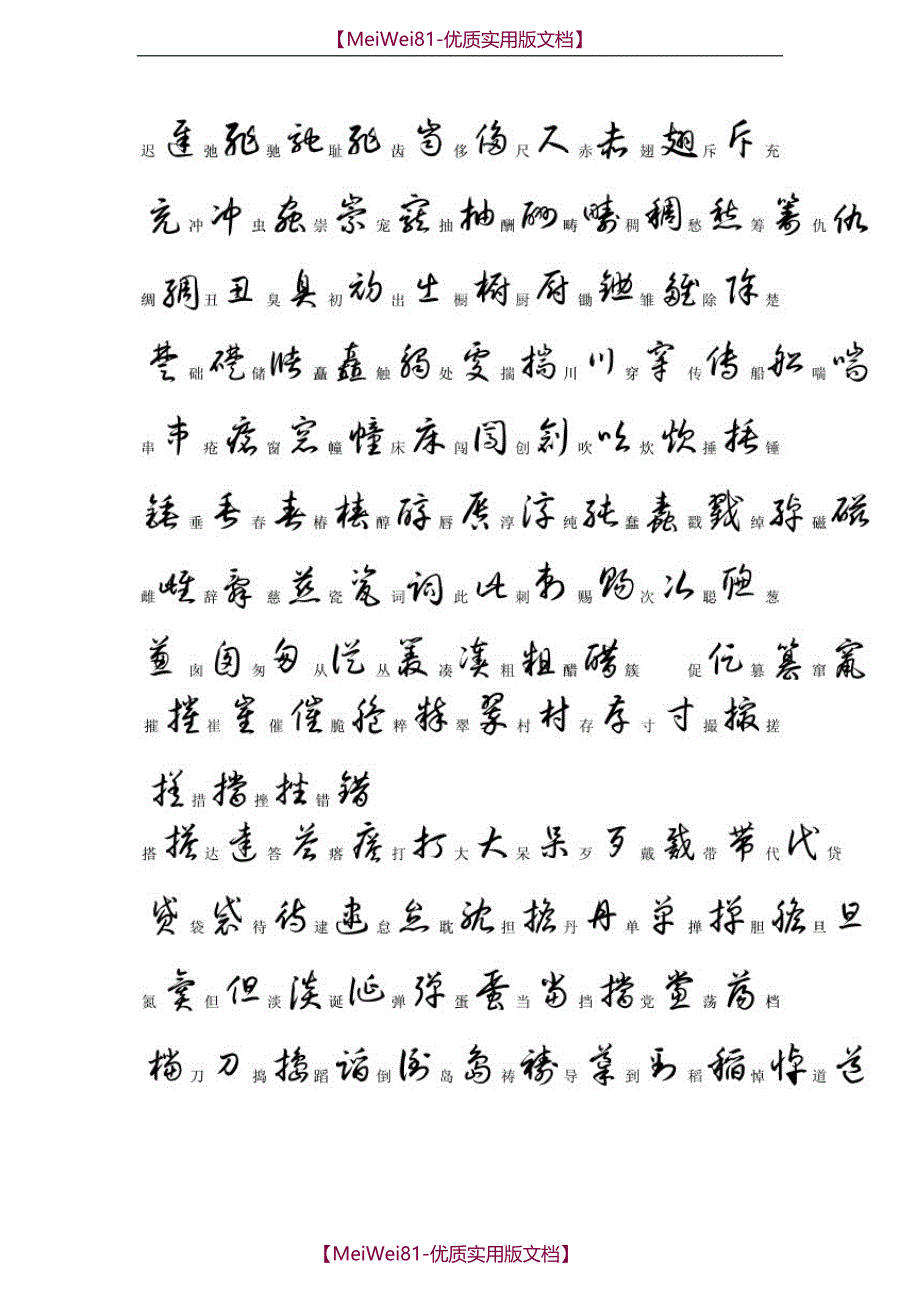 【MeiWei81-优质实用版文档】
迟 遲 弛 弛 驰 馳 耻 耻 齿 齿 侈 侈 尺 尺 赤 赤 翅 翅 斥 斥 充
充 冲 冲 虫 蟲 崇 崇 宠 寵 抽 抽 酬 酬 畴 疇 稠 稠 愁 愁 筹 籌 仇 仇
绸 綢 丑 丑 臭 臭 初 初 出 出 橱 櫥 厨 厨 锄 鋤 雏 雛 除 除 楚
楚 础 礎 储 儲 矗 矗 触 觸 处 處 揣 揣 川 川 穿 穿 传 傳 船 船 喘 喘
串 串 疮 瘡 窗 窗 幢 幢 床 床 闯 闖 创 創 吹 吹 炊 炊 捶 捶 锤
錘 垂 垂 春 春 椿 椿 醇 醇 唇 唇 淳 淳 纯 純 蠢 蠢 戳 戳 绰 綽 磁 磁
雌 雌 辞 辭 慈 慈 瓷 瓷 词 詞 此 此 刺 刺 赐 賜 次 次 聪 聰 葱
蔥 囱 囱 匆 匆 从 從 丛 叢 凑 湊 粗 粗 醋 醋 簇 促 促 篡 篡 窜 竄
摧 摧 崔 崔 催 催 脆 脆 粹 粹 翠 翠 村 村 存 存 寸 寸 撮 撮 搓
搓 措 擋 挫 挫 错 錯
搭 搭 达 達 答 答 瘩 瘩 打 打 大 大 呆 呆 歹 歹 戴 戴 带 帶 代 代 贷
貸 袋 袋 待 待 逮 逮 怠 怠 耽 耽 担 擔 丹 丹 单 單 掸 撣 胆 膽 旦 旦
氮 氮 但 但 淡 淡 诞 誕 弹 彈 蛋 蛋 当 當 挡 擋 党 黨 荡 蕩 档
檔 刀 刀 捣 搗 蹈 蹈 倒 倒 岛 島 祷 禱 导 導 到 到 稻 稻 悼 悼 道 道
【MeiWei81-优质实用版文档】